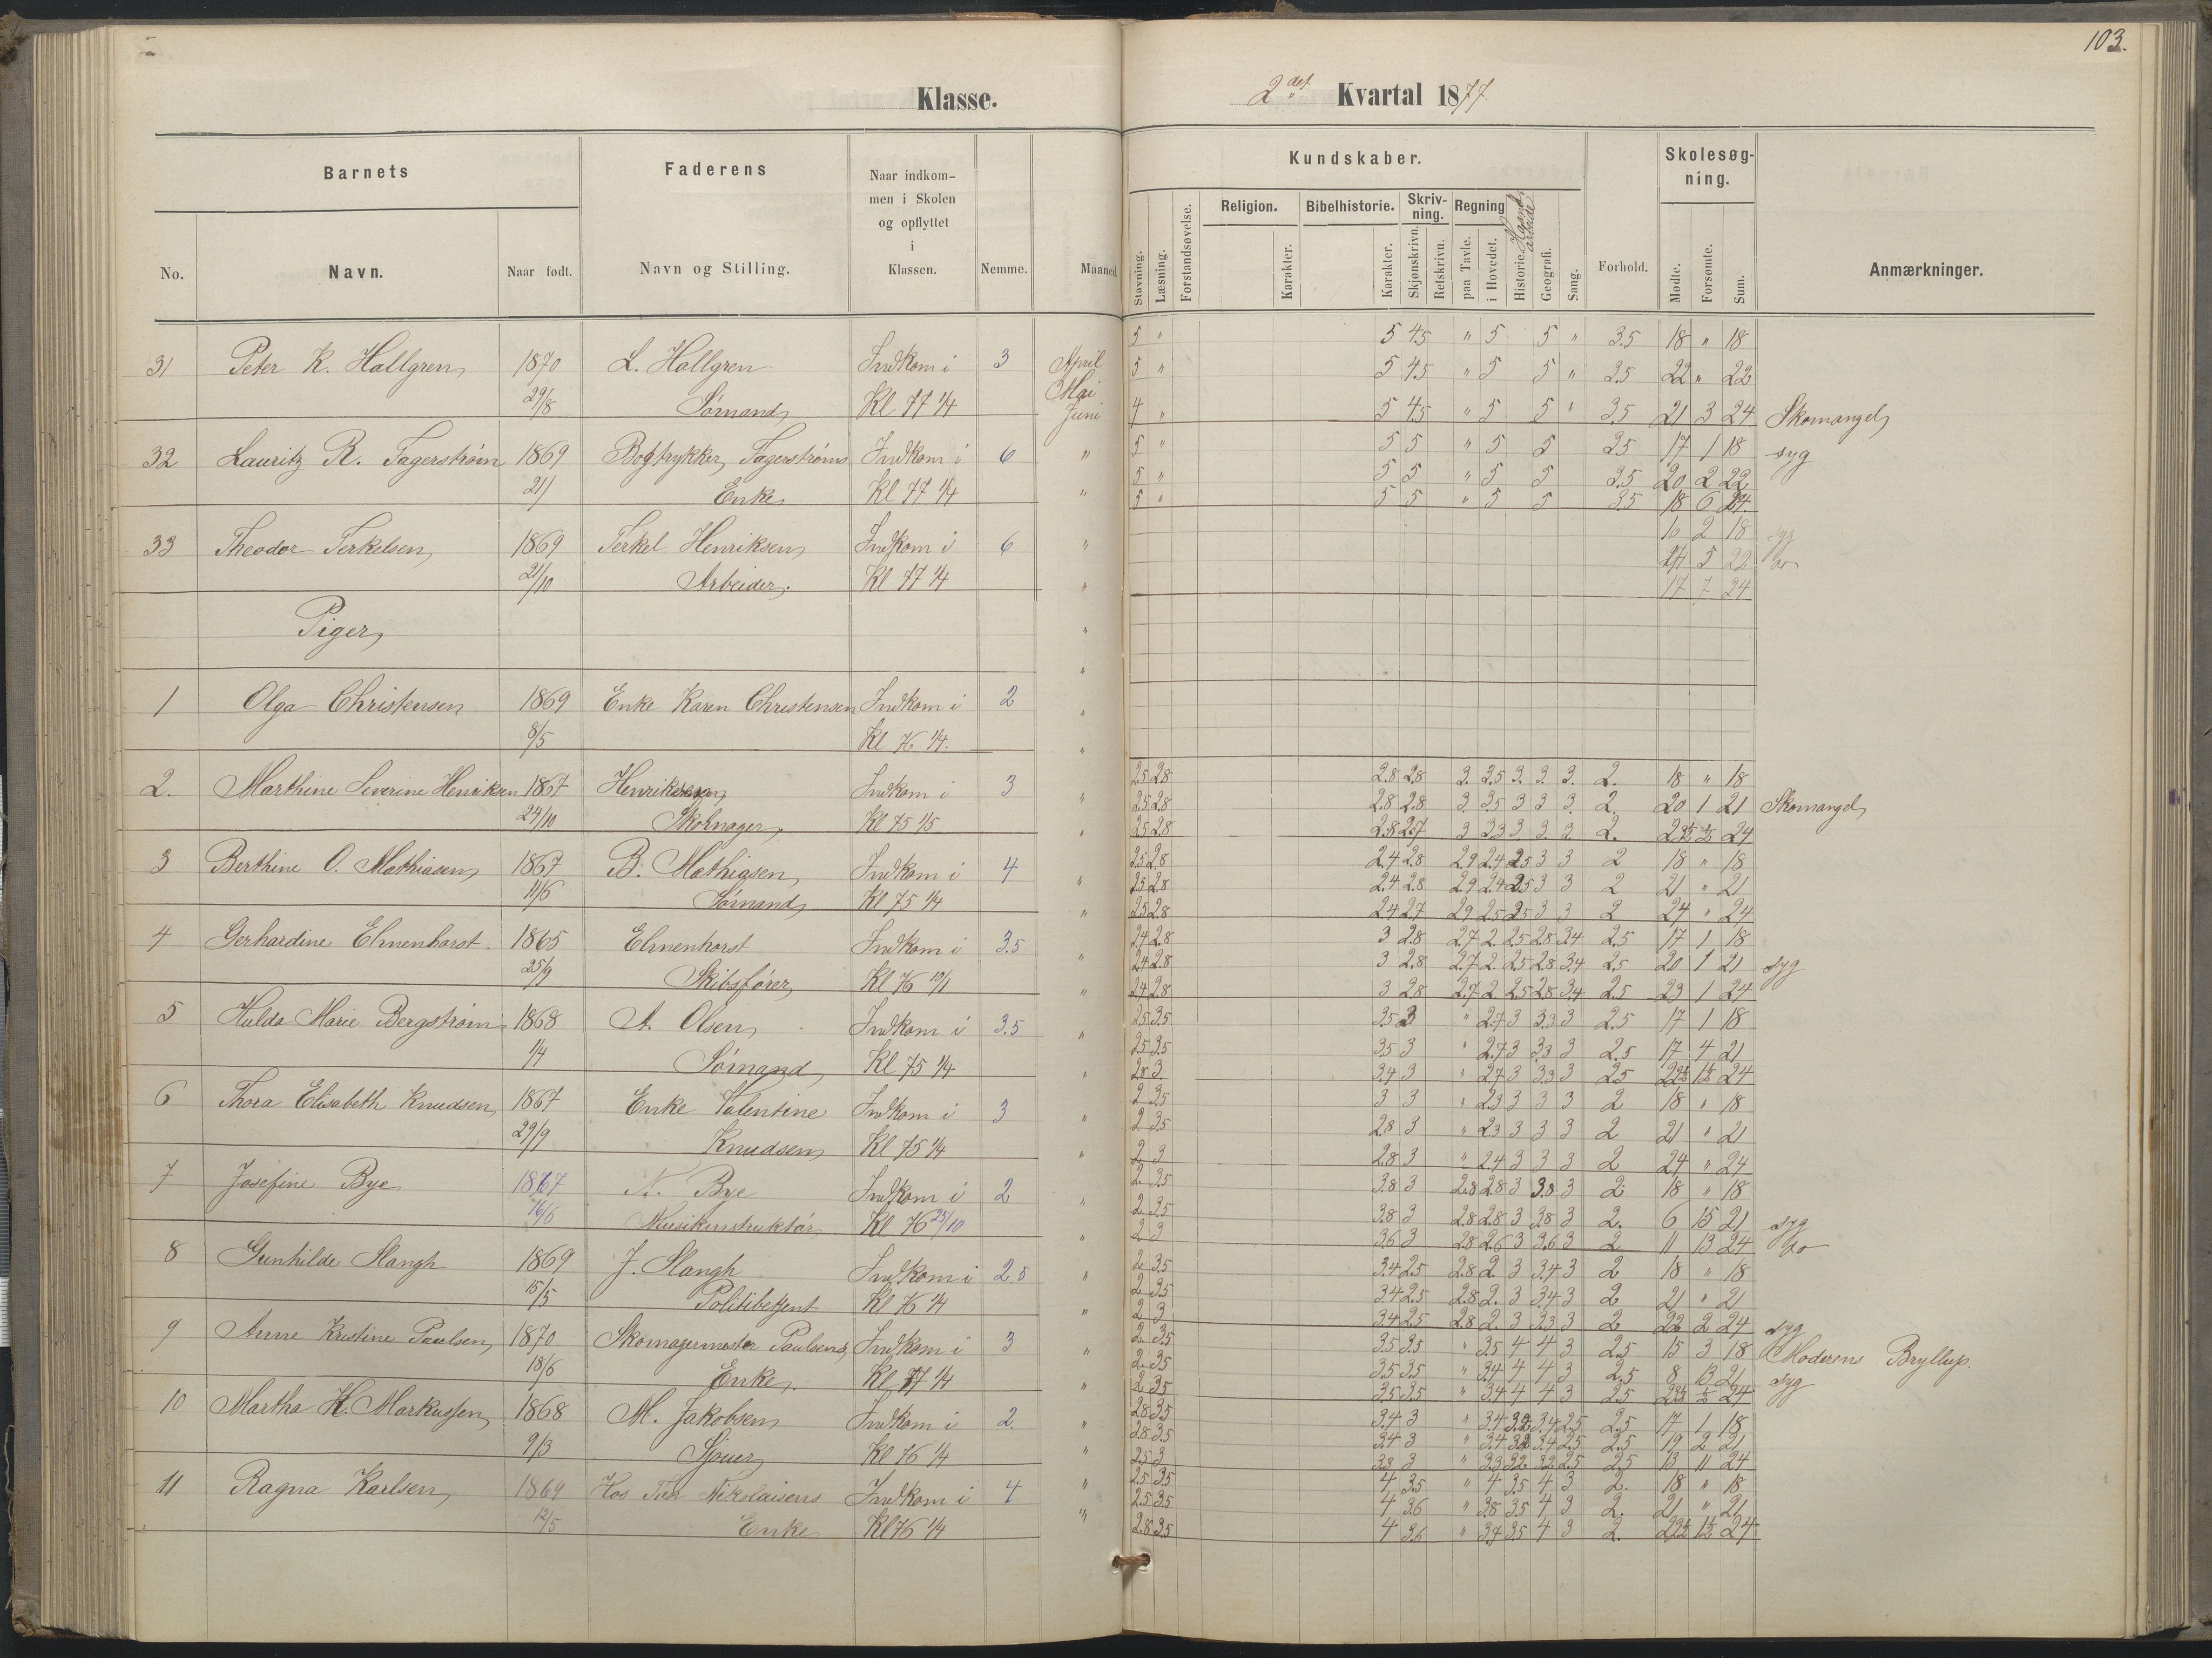 103.
Klasse.
2det Kvartal 1877.
Barnets
Faderens
Naar indkom-
men i Skolen
og opflyttet
i
Klassen.
No.
Navn.
Naar født.
Navn og Stilling.
Nemme.
Maaned.
Kundskaber.
Skolesøg-
ning.
Religion.
Bibelhistorie.
Skriv-
ning.
Regning
Haand-
arbeide
Stavning.
Læsning.
Forstandsøvelse.
Karakter.
Karakter.
Skjønskrivn.
Retskrivn.
paa Tavle.
i Hovedet.
Historie.
Geografi.
Sang.
Forhold.
Mødte.
Forsømte.
Sum.
Anmærkninger.
31 Peter K. Hallgren 1870 L. Hallgren Indkom i 3 April
29/8 Sømand Kl 77 1/4 Mai
Juni
5 " 5 4.5 " 5 5 " 3.5 18 " 18
5 " 5 4.5 " 5 5 " 3.5 22 " 22
4 " 5 4.5 " 5 5 " 3.5 21 3 24 Skomangel
32 Lauritz R. Fagerstrøm 1869 Bogtrykker Fagerstrøms Indkom i 6 "
21/ Enke Kl 77 1/4 "
5 " 5 5 " 5 5 3.5 17 1 18 syg
5 " 5 5 " 5 5 3.5 20 2 22
5 " 5 5 " 5 5 3.5 18 6 24
33 Theodor Terkelsen 1869 Terkel Henriksen Indkom i 6 "
21/10 Arbeider. Kl 77 1/4 "
16 2 18 syg
17 5 22 do
17 7 24
Piger
1 Olga Christensen 1869 Enke Karen Christensen Indkom i 2 "
8/5 Kl 76 1/4. "
2. Marthine Severine Henriksen 1867 Henriksen Indkom i 3 "
24/10 Skomager Kl 75 1/5 "
2.5 2.8 2.8 2.8 3. 3.5 3. 3. 3. 2. 18 " 18
2.5 2.8 2.8 2.8 3 3.5 3 3 3. 2. 20 1 21 Skomangel
2.5 2.8 2.8 2.7 3 3.3 3 3 3 2. 23½ ½ 24
3 Berthine O. Mathiasen 1867 B. Mathiasen Indkom i 4 "
11/6 Sømand Kl 75 1/4 "
2.5 2.8 2.4 2.8 2.9 2.4 2.5 3 3 2 18 " 18
2.5 2.8 2.4 2.8 2.9 2.4 2.5 3 3 2 21 " 21
2.5 2.8 2.4 2.7 2.9 2.5 2.5 3 3 2 24 " 24
4 Gerhardine Elmenhorst 1865 Elmenhorst Indkom i 3.5 "
25/9 Skibsfører Kl 76 10/1 "
2.4 2.8 3 2.8 2.7 2. 2.5 2.8 3.4 2.5 17 1 18
2.4 2.8 3 2.8 2.7 2. 2.5 2.8 3.4 2.5 20 1 21 syg
2.4 2.8 3 2.8 2.7 2 2.5 2.8 3.4 2.5 23 1 24
5 Hulda Marie Bergstrøm 1868 A. Olsen Indkom i 3.5 "
1/4 Sømand Kl 75 1/4 "
2.5 3.5 3.5 3 " 2.7 3 3.3 3 2.5 17 1 18
2.5 3.5 3.5 3 " 2.7 3 3.3 3 2.5 17 4 21
2.8 3 3.4 3 " 2.7 3 3.3 3 2.5 22½ 1½ 24
6 Thora Elisabeth Knudsen 1867 Enke Valentine Indkom i 3 "
29/9 Knudsen Kl 75 1/4 "
2 3.5 3 3 " 2.3 3 3 3 2 18 " 18
2 3.5 2.8 3 " 2.3 3 3 3 2 21 " 21
2 3 2.8 3 " 2.4 3 3 3 2 24 " 24
7 Josefine Bye 1867 N. Bye Indkom i 2 "
16/6 Musikinstruktør Kl 76 25/10 "
2 3.5 3.8 3 2.8 2.8 3 3.8 3 2 18 " 18
2 3.5 3.8 3 2.8 2.8 3 3.8 3 2. 6 15 21 syg
2 3 3.6 3 2.8 2.6 3 3.6 3 2 11 13 24 do
8 Gunhilde Slangh 1869 J. Slangh Indkom i 2.5 "
15/5 Politibetjent Kl 76 1/4 "
2 3.5 3.4 2.5 2.8 2. 3 3.4 3 2 18 " 18
2 3.5 3.4 2.5 2.8 2. 3 3.4 3 2 21 " 21
2 3 3.4 2.5 2.8 2 3 3.3 3 2 22 2 24 syg
9 Anne Kristine Paulsen 1870 Skomagermester Paulsens Indkom i 3 "
18/6 Enke Kl 77 1/4 "
2 3.5 3.5 3.5 " 3.5 4 4 3 2.5 15 3 18 Moderens Bryllup.
2 3.5 3.5 3.5 " 3.4 4 4 3 2.5 8 13 21 syg
2 3.5 3.5 3.5 " 3.4 4 4 3 2.5 23½ ½ 24
10 Martha K. Markussen 1868 M. Jakobsen Indkom i 2. "
9/3 Sjouer Kl 76 1/4 "
2.8 3.5 3.4 3 " 3.4 3.2 3.4 2.5 2.5 17 1 18
2.8 3.5 3.4 3 " 3.4 3.2 3.4 2.5 2.5 19 2 21
2.5 3 3.3 3 " 3.3 3.2 3.2 2.5 2.5 13 11 24
11 Ragna Karlsen 1869 Hos Nikolaisens Indkom i 4 "
12/5 Enke Kl 76 1/4 "
2.5 3.5 4 3.5 " 4 3.5 4 3 2. 18 " 18
2.5 3.5 4 3.6 " 3.8 3.5 4 3 2. 21 " 21
2.8 3.5 4 3.6 " 3.7 3.5 4 3 2. 22½ 1½ 24